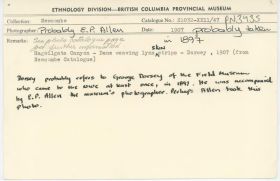 ETHNOLOGY DIVISION—BRITISH COLUMBIA PROVINCIAL MUSEUM
Collection Newcombe Catalogue No.: PN3935
Photographer: Probably E.P. Allen Date: 1907 probably taken
Remarks: See photo catalogue page in 1897
for further information
skin
Canyon - Dene weaving lynx stripe - Dorsey, 1907 (from
Newcombe Catalogue)
Dorsey probably refers to George Dorsey of the Field Museum
who came to the area at least once, in 1897. He was accompanied
by E.P. Allen the museum's photographer. Perhaps Allen took this
photo.